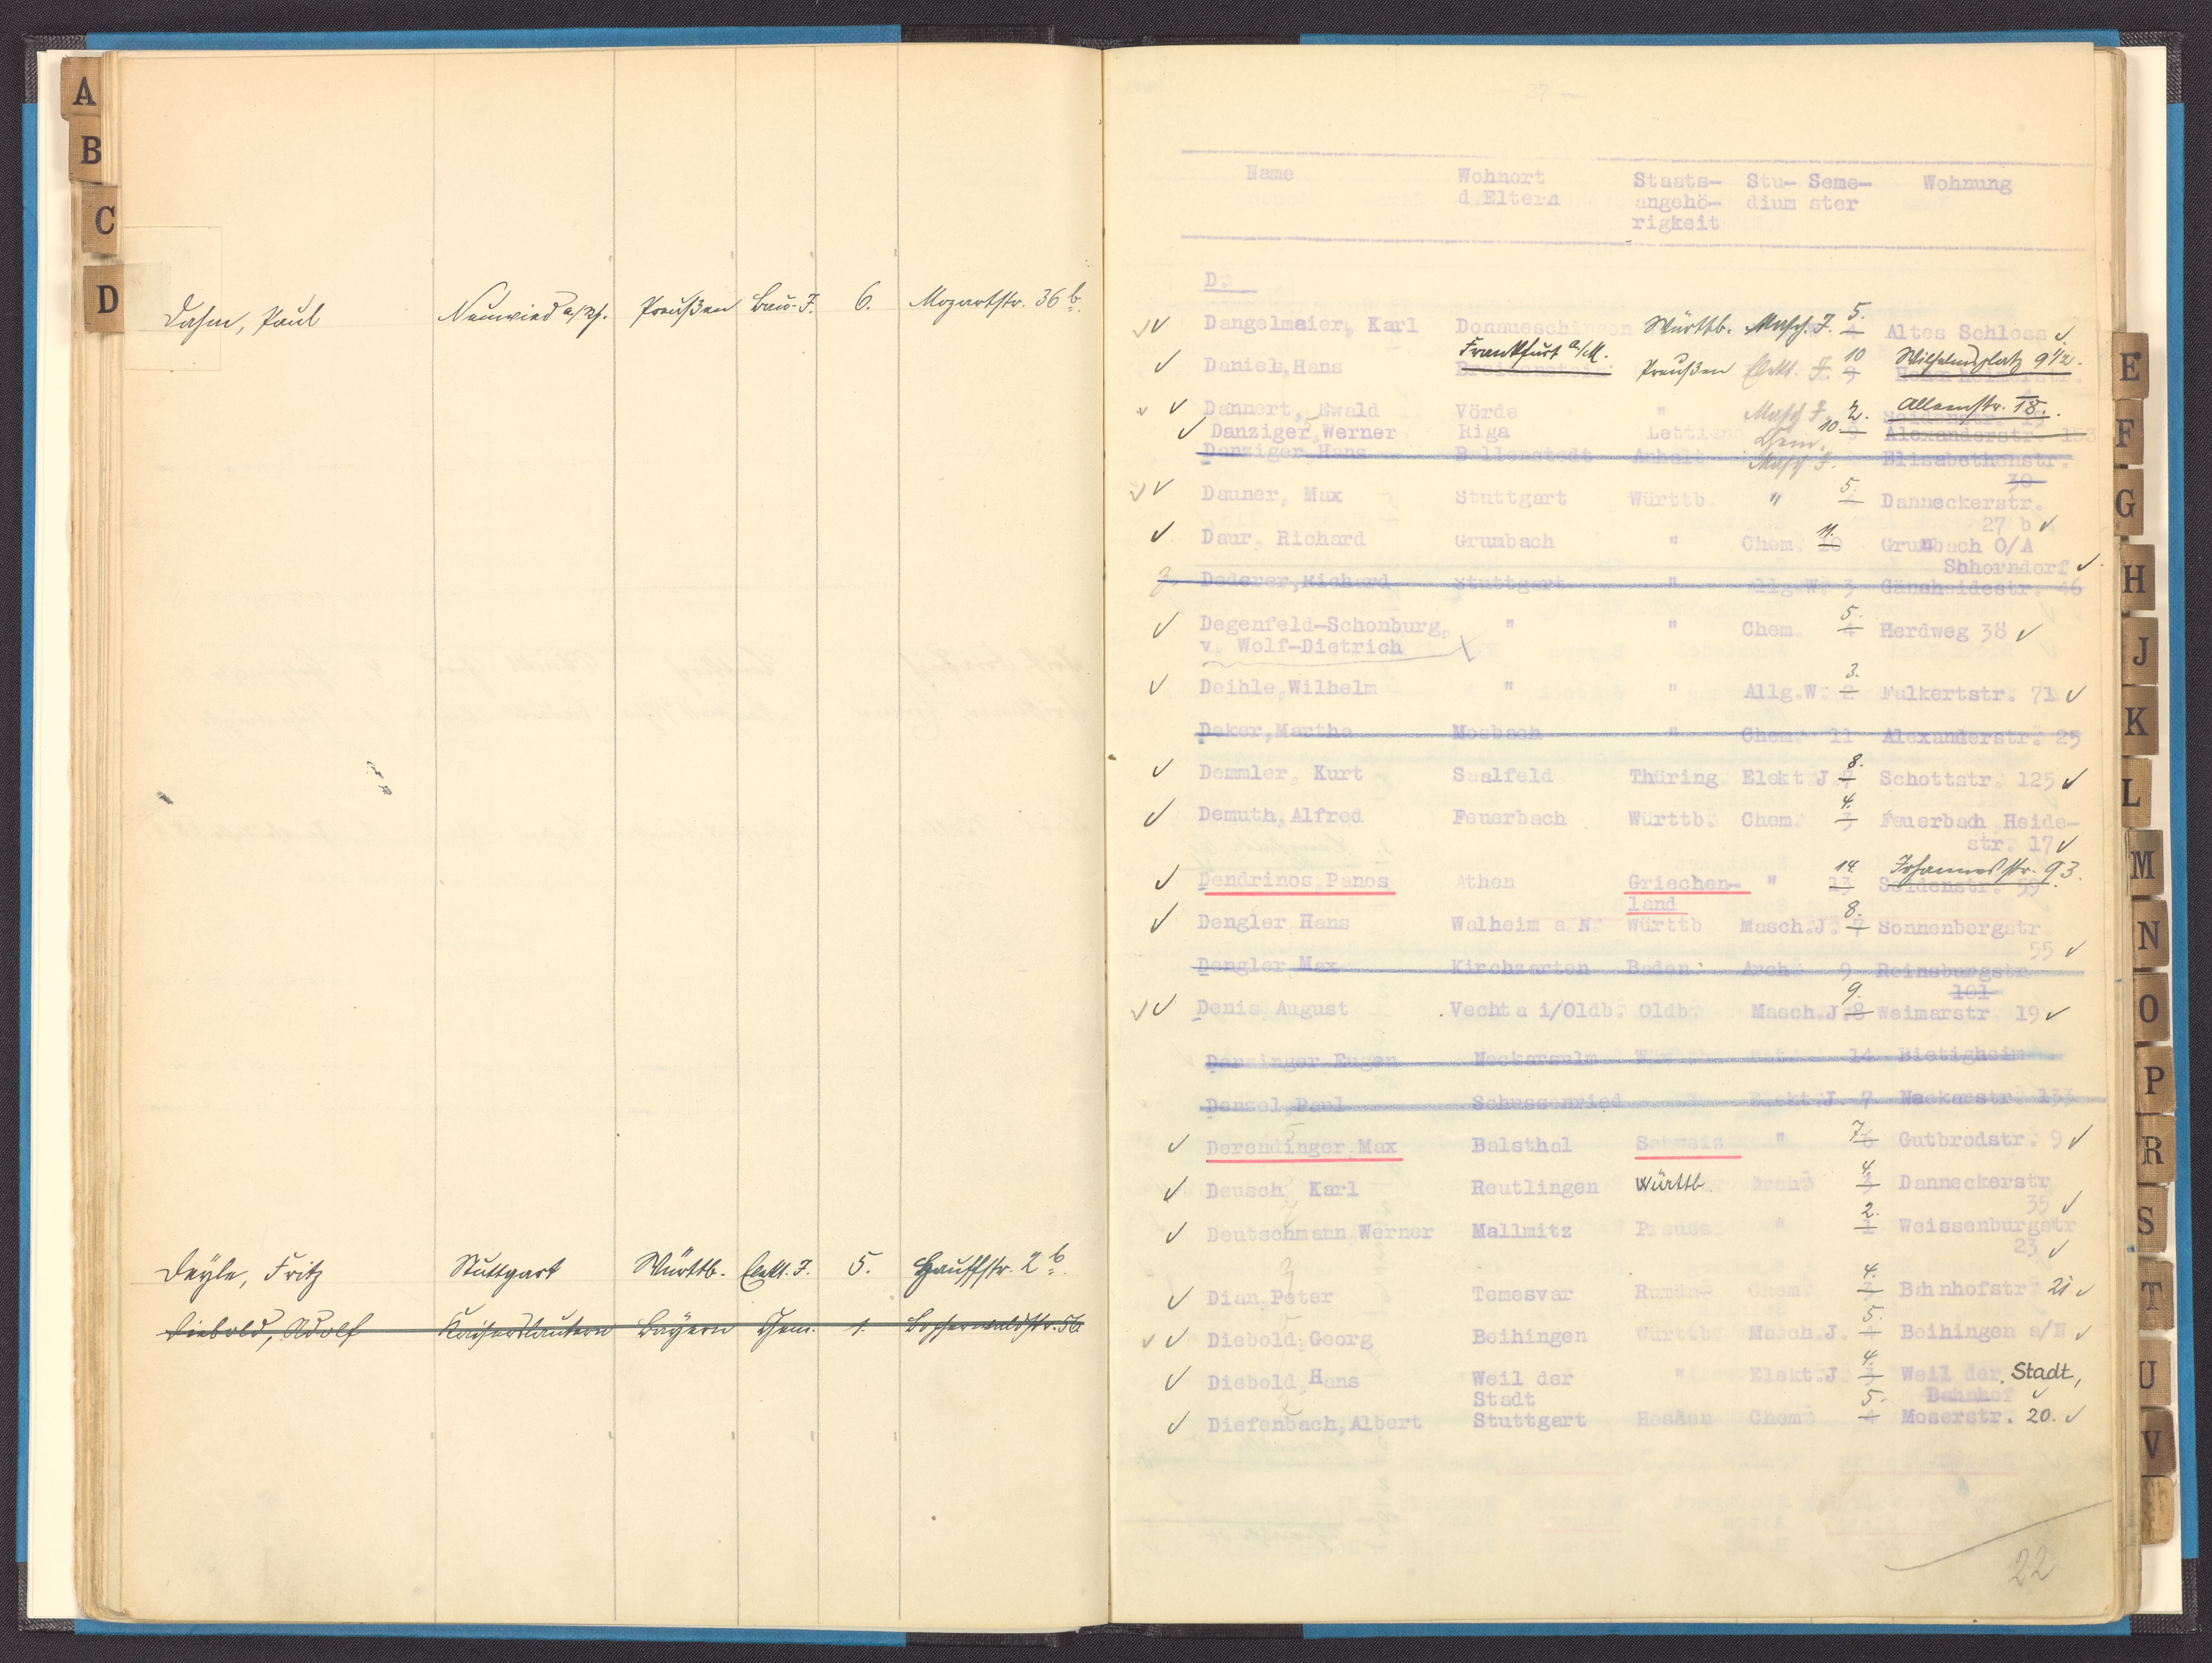 A
B
C
D
Dahm, Paul Neuwied a/Rh. Preußen Bau-J. 6. Mozartstr. 36 b.
Deyle, Fritz Stuttgart Württb. Elekt. J. 5. Hauffstr. 2 b.
Diebold, Adolf Kaiserslautern Bayern Chem. 1. Bopserwaldstr. 56
— 27 —
Name Wohnort Staats- Stu- Seme- Wohnung
d.Eltern angehö- dium ster
rigkeit
D.
Dangelmaier, Karl Donaueschingen Württb. Masch. J. 4 5. Altes Schloss
Frankfurt a/M. 10 Wilhelmsplatz 9 1/2.
Daniel, Hans Breidenstein Preußen Elekt. J. 9 Hohenheimerstr.
Alleenstr. 18.
Dannert, Ewald Vörde " Masch J. 2. Seidenstr.
Danziger, Werner Riga Lettland Chem. 10. 9 Alexanderstr. 153
Danziger, Hans Ballenstedt Anhalt Masch J. Elisabethenstr.
30
Dauner, Max Stuttgart Württb. " 5. Danneckerstr.
27 b
Daur, Richard Grumbach " Chem. 10 11. Grumbach O/A
Shhorndorf
Dederer, Richard Stuttgart " Allg.W. 3 Gänsheidestr. 46
Degenfeld-Schonburg, " " Chem. 4 5. Herdweg 38
v. Wolf-Dietrich
Deihle, Wilhelm " " Allg.W. 2 3. Falkertstr. 71
Deker, Martha Mosbach " Chem. 11 Alexanderstr. 25
Demmler, Kurt Saalfeld Thüring. Elekt J. 7 8. Schottstr. 125
Demuth, Alfred Feuerbach Württb. Chem. 3 4. Feuerbach Heide-
str. 17
Johannesstr. 93.
Dendrinos Panos Athen Griechen- " 13 14. Seidenstr. 55
land
Dengler Hans Walheim a.N. Württb Masch.J. 7 8. Sonnenbergstr
55
Dengler Max Kirchzarten Baden Arch 9 Reinsburgstr
101
Denis August Vechta i/Oldb. Oldb. Masch.J. 8 9. Weimarstr 19
Denninger Eugen Neckarsulm 14 Bietigheim
Denzel, Paul Schussenried Elekt.J. 7 Neckarstr 133
Derendinger, Max Balsthal Schweiz " 6 7. Gutbrodstr. 9
Deusch Karl Reutlingen Württb. Arch. 3 4. Danneckerstr
35
Deutschmann Werner Mallmitz Preuss " 1 2. Weissenburgstr
23
Dian, Peter Temesvar Rumän. Chem 3 4. Bahnhofstr 21
Diebold, Georg Beihingen Württb Masch.J. 4 5. Beihingen a/N
Diebold, Hans Weil der " Elekt.J 3 4. Weil der Stadt,
Stadt Bahnhof
Diefenbach, Albert Stuttgart Hessen Chem 4 5. Moserstr. 20.
22
E
F
G
H
J
K
L
M
N
O
P
R
S
T
U
V